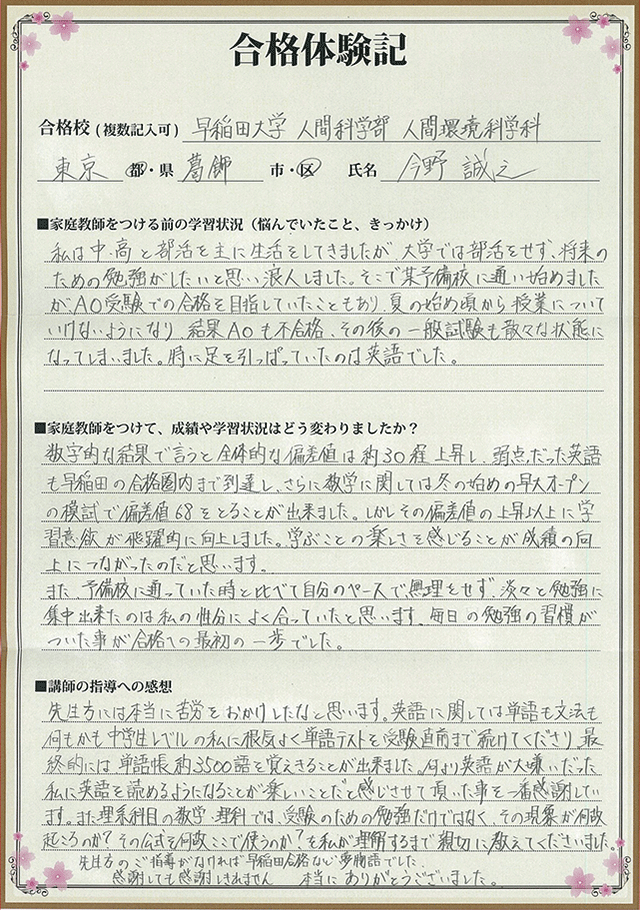 合格体験記
合格校(複数記入可) 早稲田大学 人間科学部 人間環境科学科
東京 都・県 葛飾 市・区 氏名 今野 誠之
■家庭教師をつける前の学習状況(悩んでいたこと、きっかけ)
私は中・高と部活を主に生活をしてきましたが、大学では部活をせず、将来の
ための勉強がしたいと思い浪人しました。そこで某予備校に通い始めました
がAO受験での合格を目指していたこともあり、夏の始め頃から授業について
いけないようになり、結果AOも不合格、その後の一般試験も散々な状態に
なってしまいました。特に足を引っぱっていたのは英語でした。
■家庭教師をつけて、成績や学習状況はどう変わりましたか?
数字的な結果で言うと全体的な偏差値は約30程上昇し、弱点だった英語
も早稲田の合格圏内まで到達し、さらに数学に関しては冬の始めの早大オープン
の模試で偏差値68をとることが出来ました。しかしその偏差値の上昇以上に学
習意欲が飛躍的に向上しました。学ぶことの楽しさを感じることが成績の向
上につながったのだと思います。
また、予備校に通っていた時と比べて自分のペースで無理をせず、淡々と勉強に
集中出来たのは私の性分によく合っていたと思います。毎日の勉強の習慣が
ついた事が合格への最初の一歩でした。
■講師の指導への感想
先生方には本当に苦労をおかけしたなと思います。英語に関しては単語も文法も
何もかも中学生レベルの私に根気よく単語テストを受験直前まで続けてくださり、最
終的には単語帳約3500語を覚えきることが出来ました。何より英語が大嫌いだった
私に英語を読めるようになることが楽しいことだと感じさせて頂いた事を一番感謝してい
ます。また理系科目の数学・理科では、受験のための勉強だけではなく、その現象が何故
起こるのか?その公式を何故ここで使うのか?を私が理解するまで親切に教えてくださいました。
先生方のご指導がなければ早稲田合格など夢物語でした。
感謝しても感謝しきれません 本当にありがとうございました。